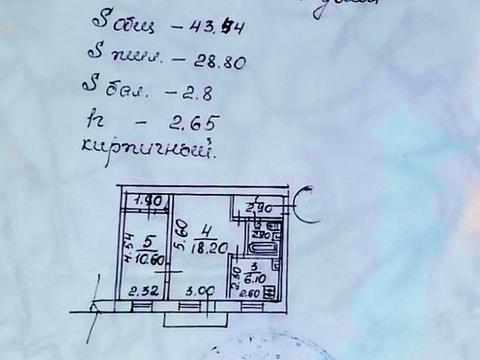 S общ - 43.54
S жил. - 28.80
S бал. - 2.8
h - 2.65
кирпичный.
1.90
2.90
5.60
4
18.20
2.90
4.54
5
10.60
2.50
3
6.10
2.32
3.00
2.60